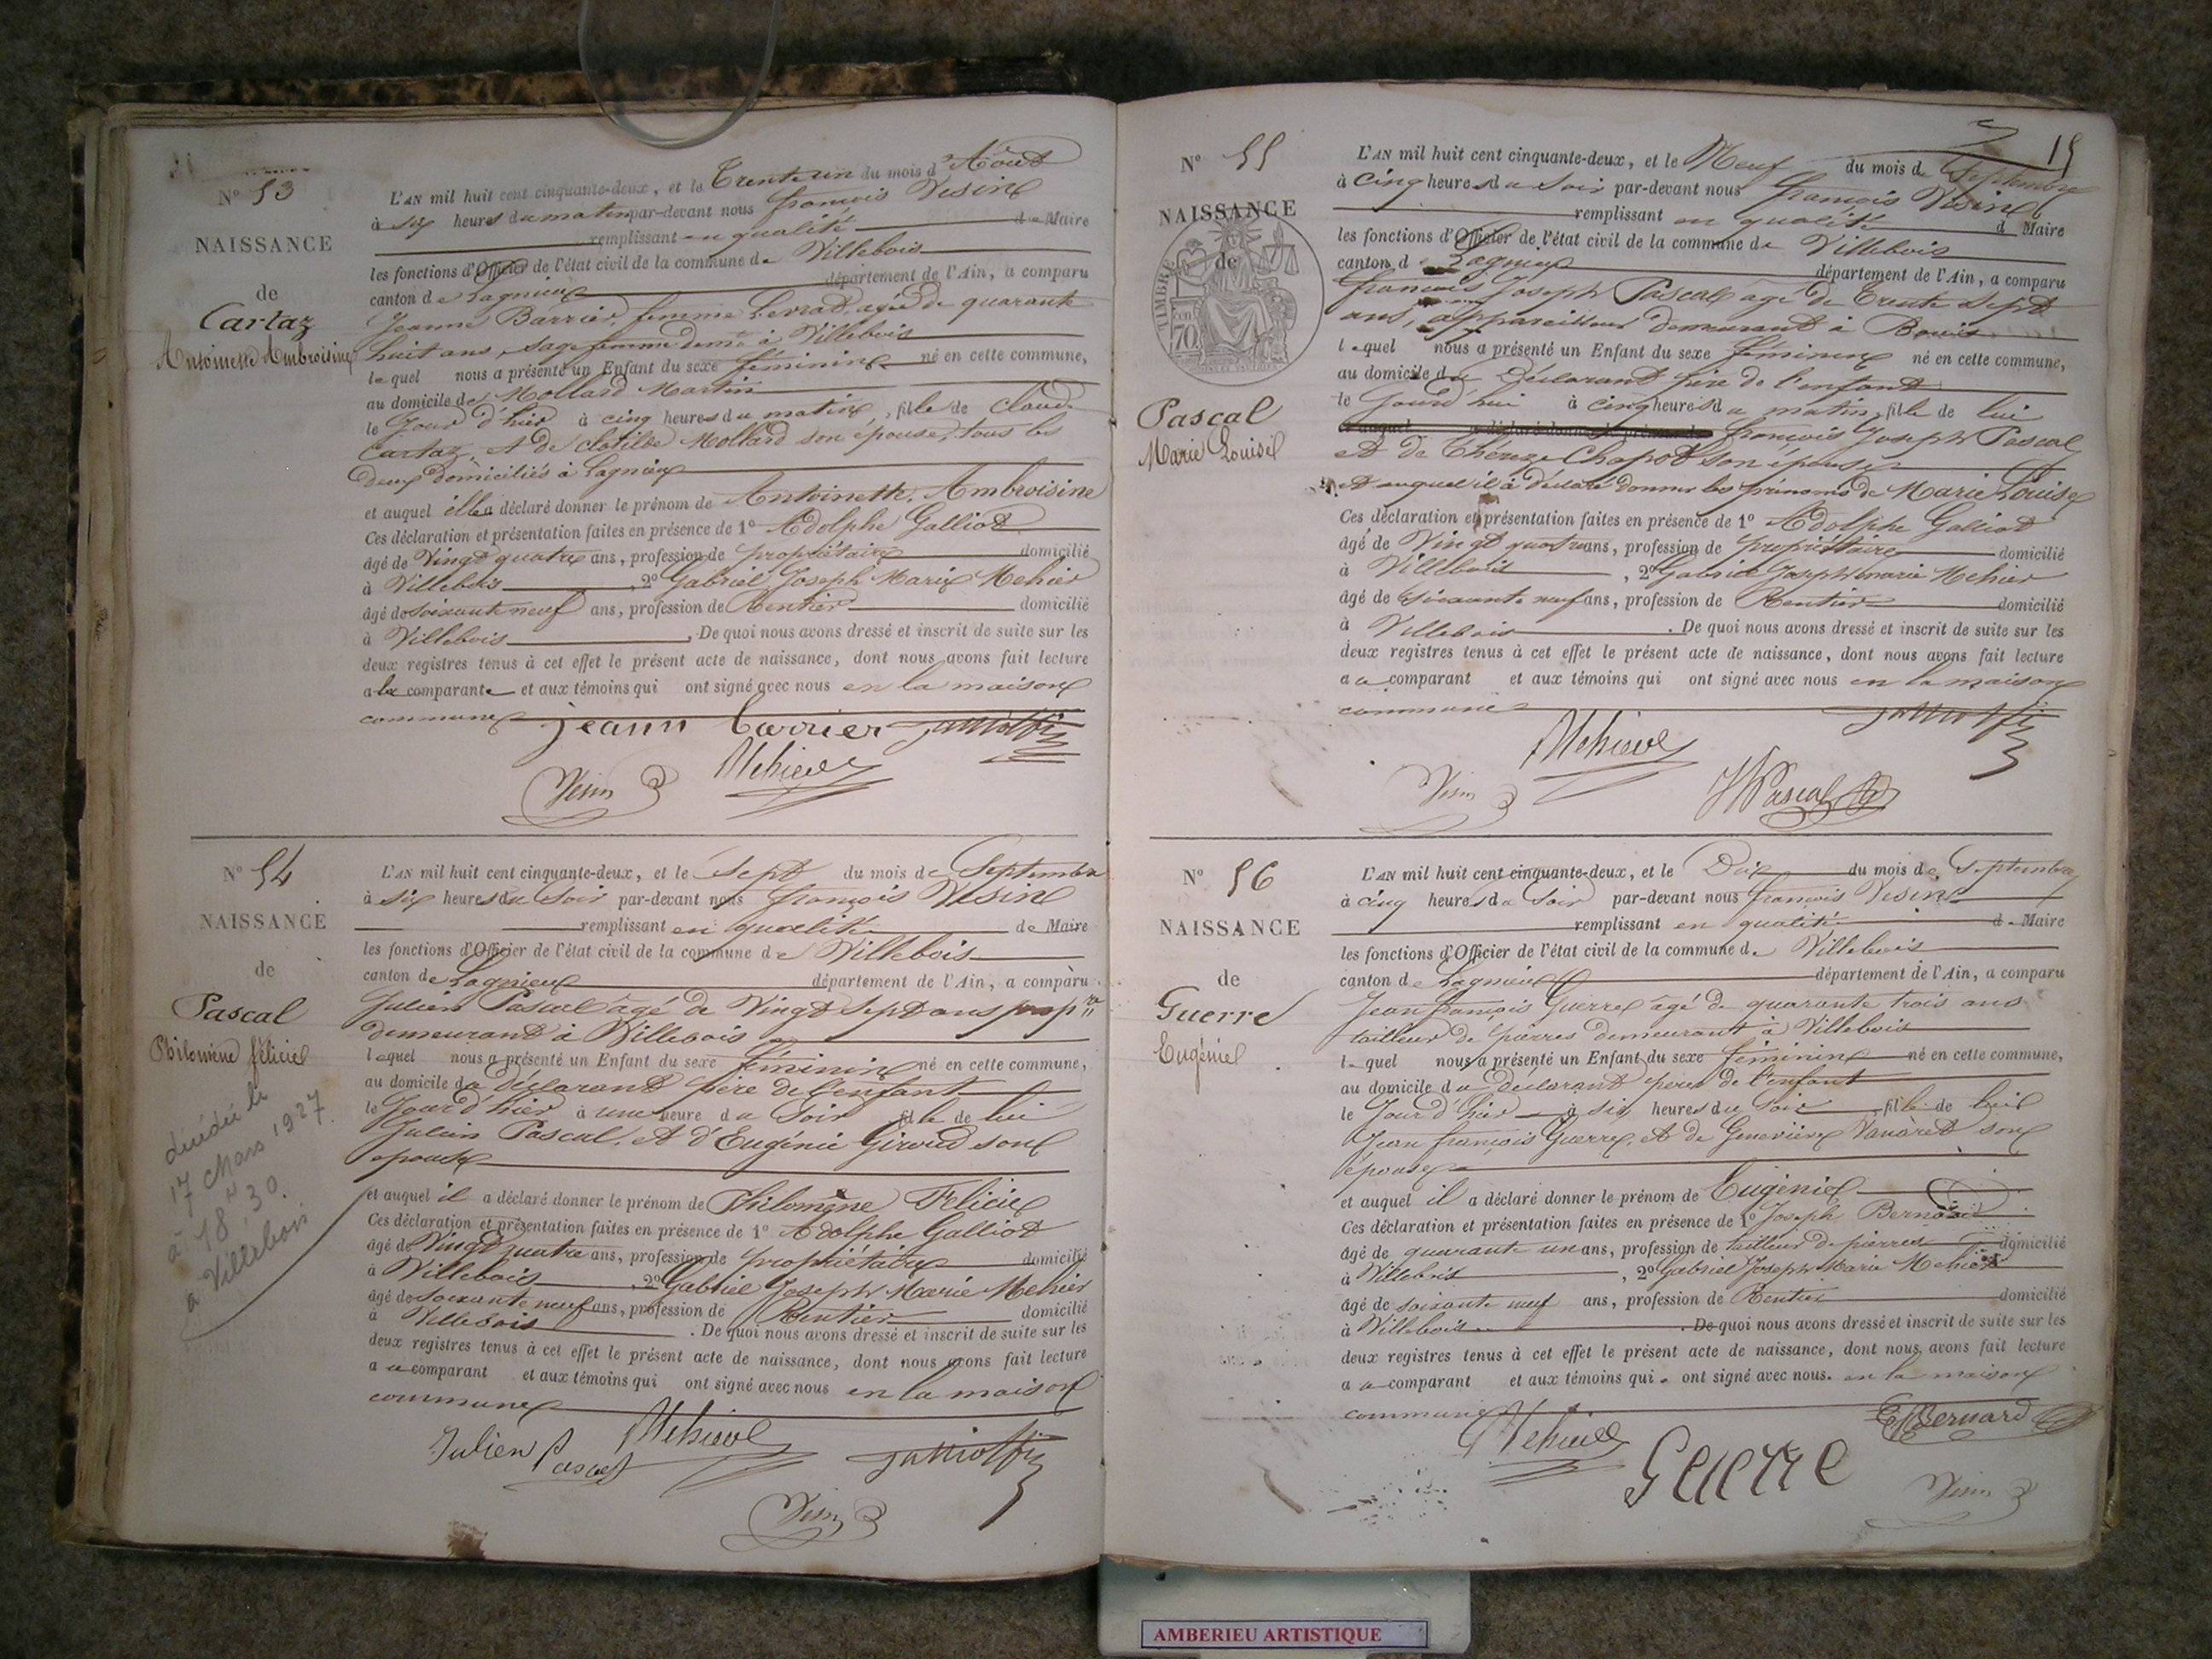 N° 53
NAISSANCE
de
Cartaz
Antoinette Ambroisine
L'AN mil huit cent cinquante-deux, et le Trente un du mois d'Août
à six heures du matin par-devant nous françois Vesin
remplissant en qualité de Maire
les fonctions d'Officier de l'état civil de la commune de Villebois
canton de Lagnieu département de l'Ain, a comparu
Jeanne Barrier, femme Levrat, agée de quarante
huit ans, sage femme demt à Villebois
laquel nous a présenté un Enfant du sexe féminin né en cette commune,
au domicile de Mollard Martin
le Jour d'hier à cinq heures du matin, fille de claude
Cartaz, et de clotilde Mollard son épouse, tous les
deux domiciliés à Lagnieu
et auquel elle a déclaré donner le prénom de Antoinette, Ambroisine
Ces déclaration et présentation faites en présence de 1° Adolphe Galliot
âgé de Vingt quatre ans, profession de propriétaire domicilié
à Villebois, 2° Gabriel Joseph Marie Mehier
âgé de soixante neuf ans, profession de Rentier domicilié
à Villebois. De quoi nous avons dressé et inscrit de suite sur les
deux registres tenus à cet effet le présent acte de naissance, dont nous avons fait lecture
a la comparante et aux témoins qui ont signé avec nous en la maison
commune
jeann barrier
Mehier
Vesin
N° 54
NAISSANCE
de
Pascal
Philomène félicie
décédée le
17 Mars 1927
à 18 H 30.
à Villebois
L'AN mil huit cent cinquante-deux, et le Sept du mois de Septembre
à six heures du Soir par-devant nous françois Vesin
remplissant en qualité de Maire
les fonctions d'Officier de l'état civil de la commune de Villebois
canton de Lagnieu département de l'Ain, a comparu
Julien Pascal agé de Vingt Sept ans prop re
demeurant à Villebois
lequel nous a présenté un Enfant du sexe féminin né en cette commune,
au domicile du déclarant père de l'enfant
le Jour d'hier à une heure du Soir fille de lui
Julien Pascal, et d'Eugénie Girard son
épouse
et auquel il a déclaré donner le prénom de Philomène Félicie
Ces déclaration et présentation faites en présence de 1° Adolphe Galliot
âgé de Vingt quatre ans, profession de propriétaire domicilié
à Villebois, 2° Gabriel Joseph Marie Mehier
âgé de soixante neuf ans, profession de Rentier domicilié
à Villebois. De quoi nous avons dressé et inscrit de suite sur les
deux registres tenus à cet effet le présent acte de naissance, dont nous avons fait lecture
a u comparant et aux témoins qui ont signé avec nous en la maison
commune
Julien Pascal
Mehier
Vesin
15
N° 55
NAISSANCE
de
TIMBRE
70
Pascal
Marie Louise
L'AN mil huit cent cinquante-deux, et le Neuf du mois de Septembre
à cinq heures du Soir par-devant nous françois Vesin
remplissant en qualité de Maire
les fonctions d'Officier de l'état civil de la commune de Villebois
canton de Lagnieu département de l'Ain, a comparu
françois Joseph Pascal agé de Trente Sept
ans, appareilleur demeurant à Bouis
lequel nous a présenté un Enfant du sexe féminin né en cette commune,
au domicile du Déclarant père de l'enfant
le Jourd'hui à cinq heures du matin, fille de lui
françois Joseph Pascal
et de Thérèze Chapot son épouse
et auquel il à déclaré donner les prénoms de Marie Louise
Ces déclaration et présentation faites en présence de 1° Adolphe Galliot
âgé de Vingt quatre ans, profession de Propriétaire domicilié
à Villebois, 2° Gabriel Joseph marie Mehier
âgé de soixante neuf ans, profession de Rentier domicilié
à Villebois. De quoi nous avons dressé et inscrit de suite sur les
deux registres tenus à cet effet le présent acte de naissance, dont nous avons fait lecture
a u comparant et aux témoins qui ont signé avec nous en la maison
commune
Mehier
Vesin
Pascal
N° 56
NAISSANCE
de
Guerre
Eugénie
L'AN mil huit cent cinquante-deux, et le Dix du mois de Septembre
à cinq heures du Soir par-devant nous françois Vesin
remplissant en qualité de Maire
les fonctions d'Officier de l'état civil de la commune de Villebois
canton de Lagnieu département de l'Ain, a comparu
Jean françois Guerre agé de quarante trois ans
tailleur de pierres demeurant à Villebois
lequel nous a présenté un Enfant du sexe féminin né en cette commune,
au domicile du déclarant père de l'enfant
le Jour d'hier à six heures du Soir fille de lui
Jean françois Guerre, et de Geneviève Vanaret son
épouse
et auquel il a déclaré donner le prénom de Eugénie
Ces déclaration et présentation faites en présence de 1° Joseph Bernard
âgé de quarante un ans, profession de tailleur de pierres domicilié
à Villebois, 2° Gabriel Joseph Marie Mehier
âgé de soixante neuf ans, profession de Rentier domicilié
à Villebois. De quoi nous avons dressé et inscrit de suite sur les
deux registres tenus à cet effet le présent acte de naissance, dont nous avons fait lecture
a u comparant et aux témoins qui ont signé avec nous. en la maison
commune
Mehier
Bernard
Guerre
Vesin
AMBERIEU ARTISTIQUE